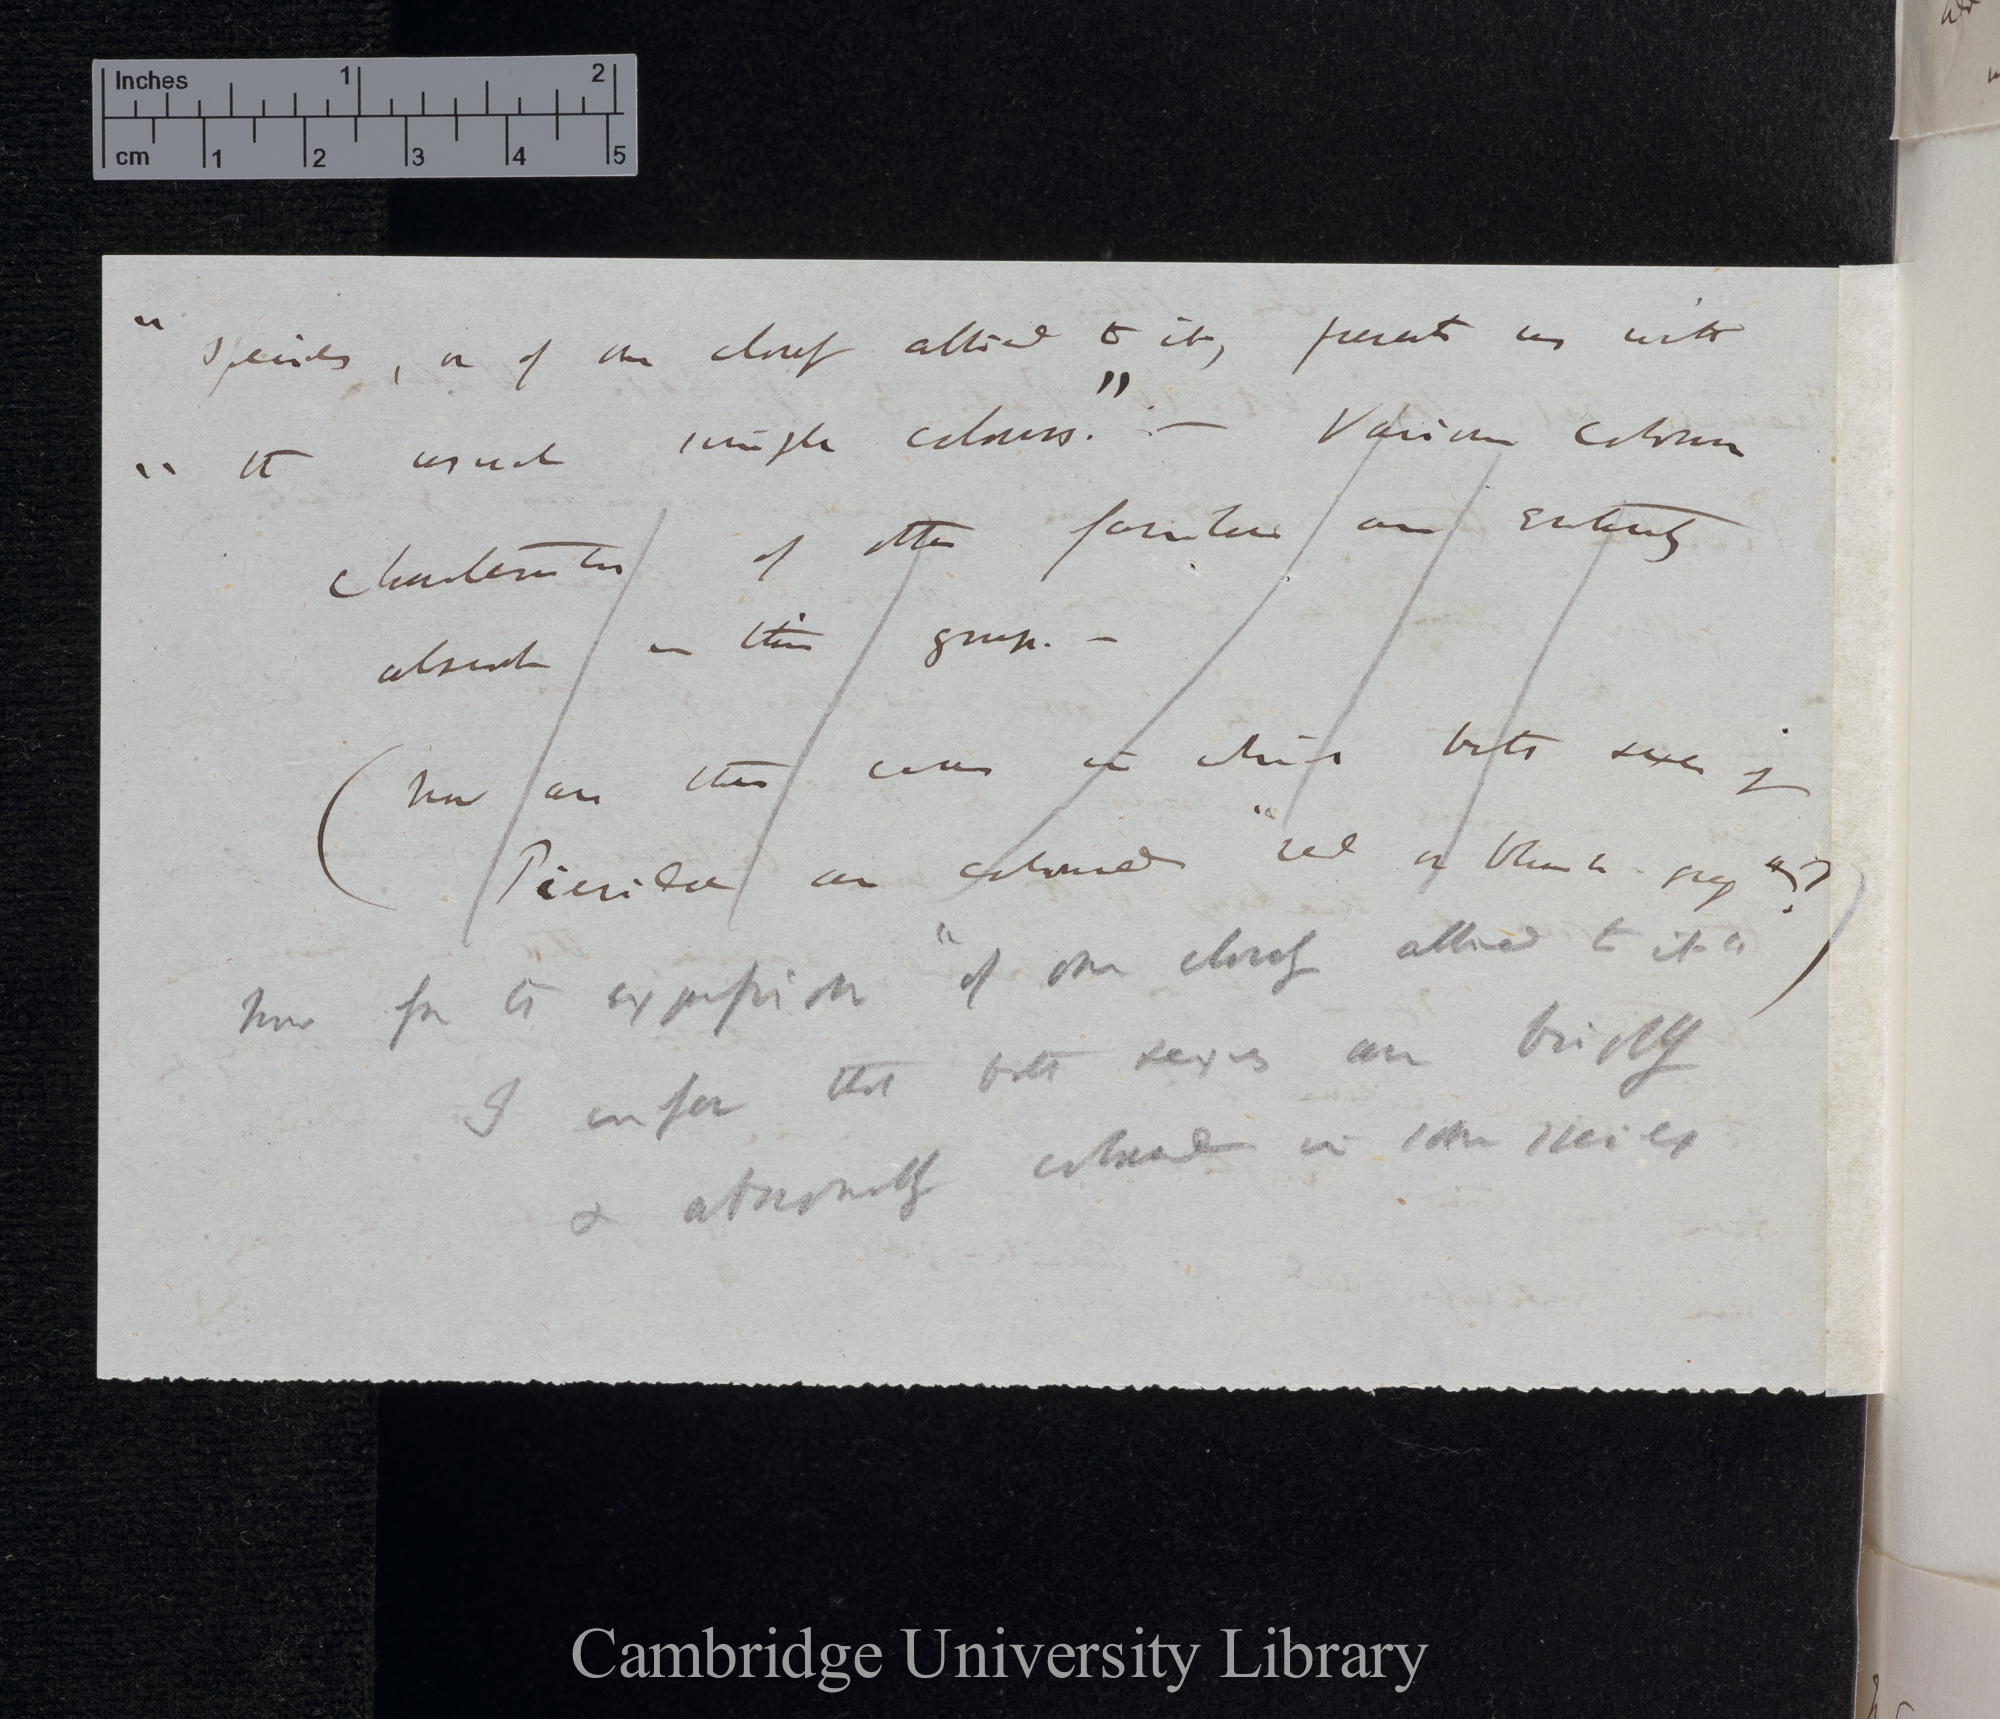 Inches 1 2
cm 1 2 3 4 5
" species, or of one closely allied to it, presents us with
" the usual simple colours." — Various colours
characteristic of other families are entirely
absent in this group. —
(Now are there cases in which both sexes of
Pieridae are coloured "red or black "?)
Now from the expression "of one closely allied to it"
I infer that both sexes are brightly
& abnormally coloured in some species
Cambridge University Library